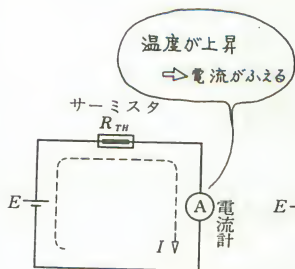 温度が上昇
⇨電流がふえる
サーミスタ
R_TH
E
A
電流計
I
E